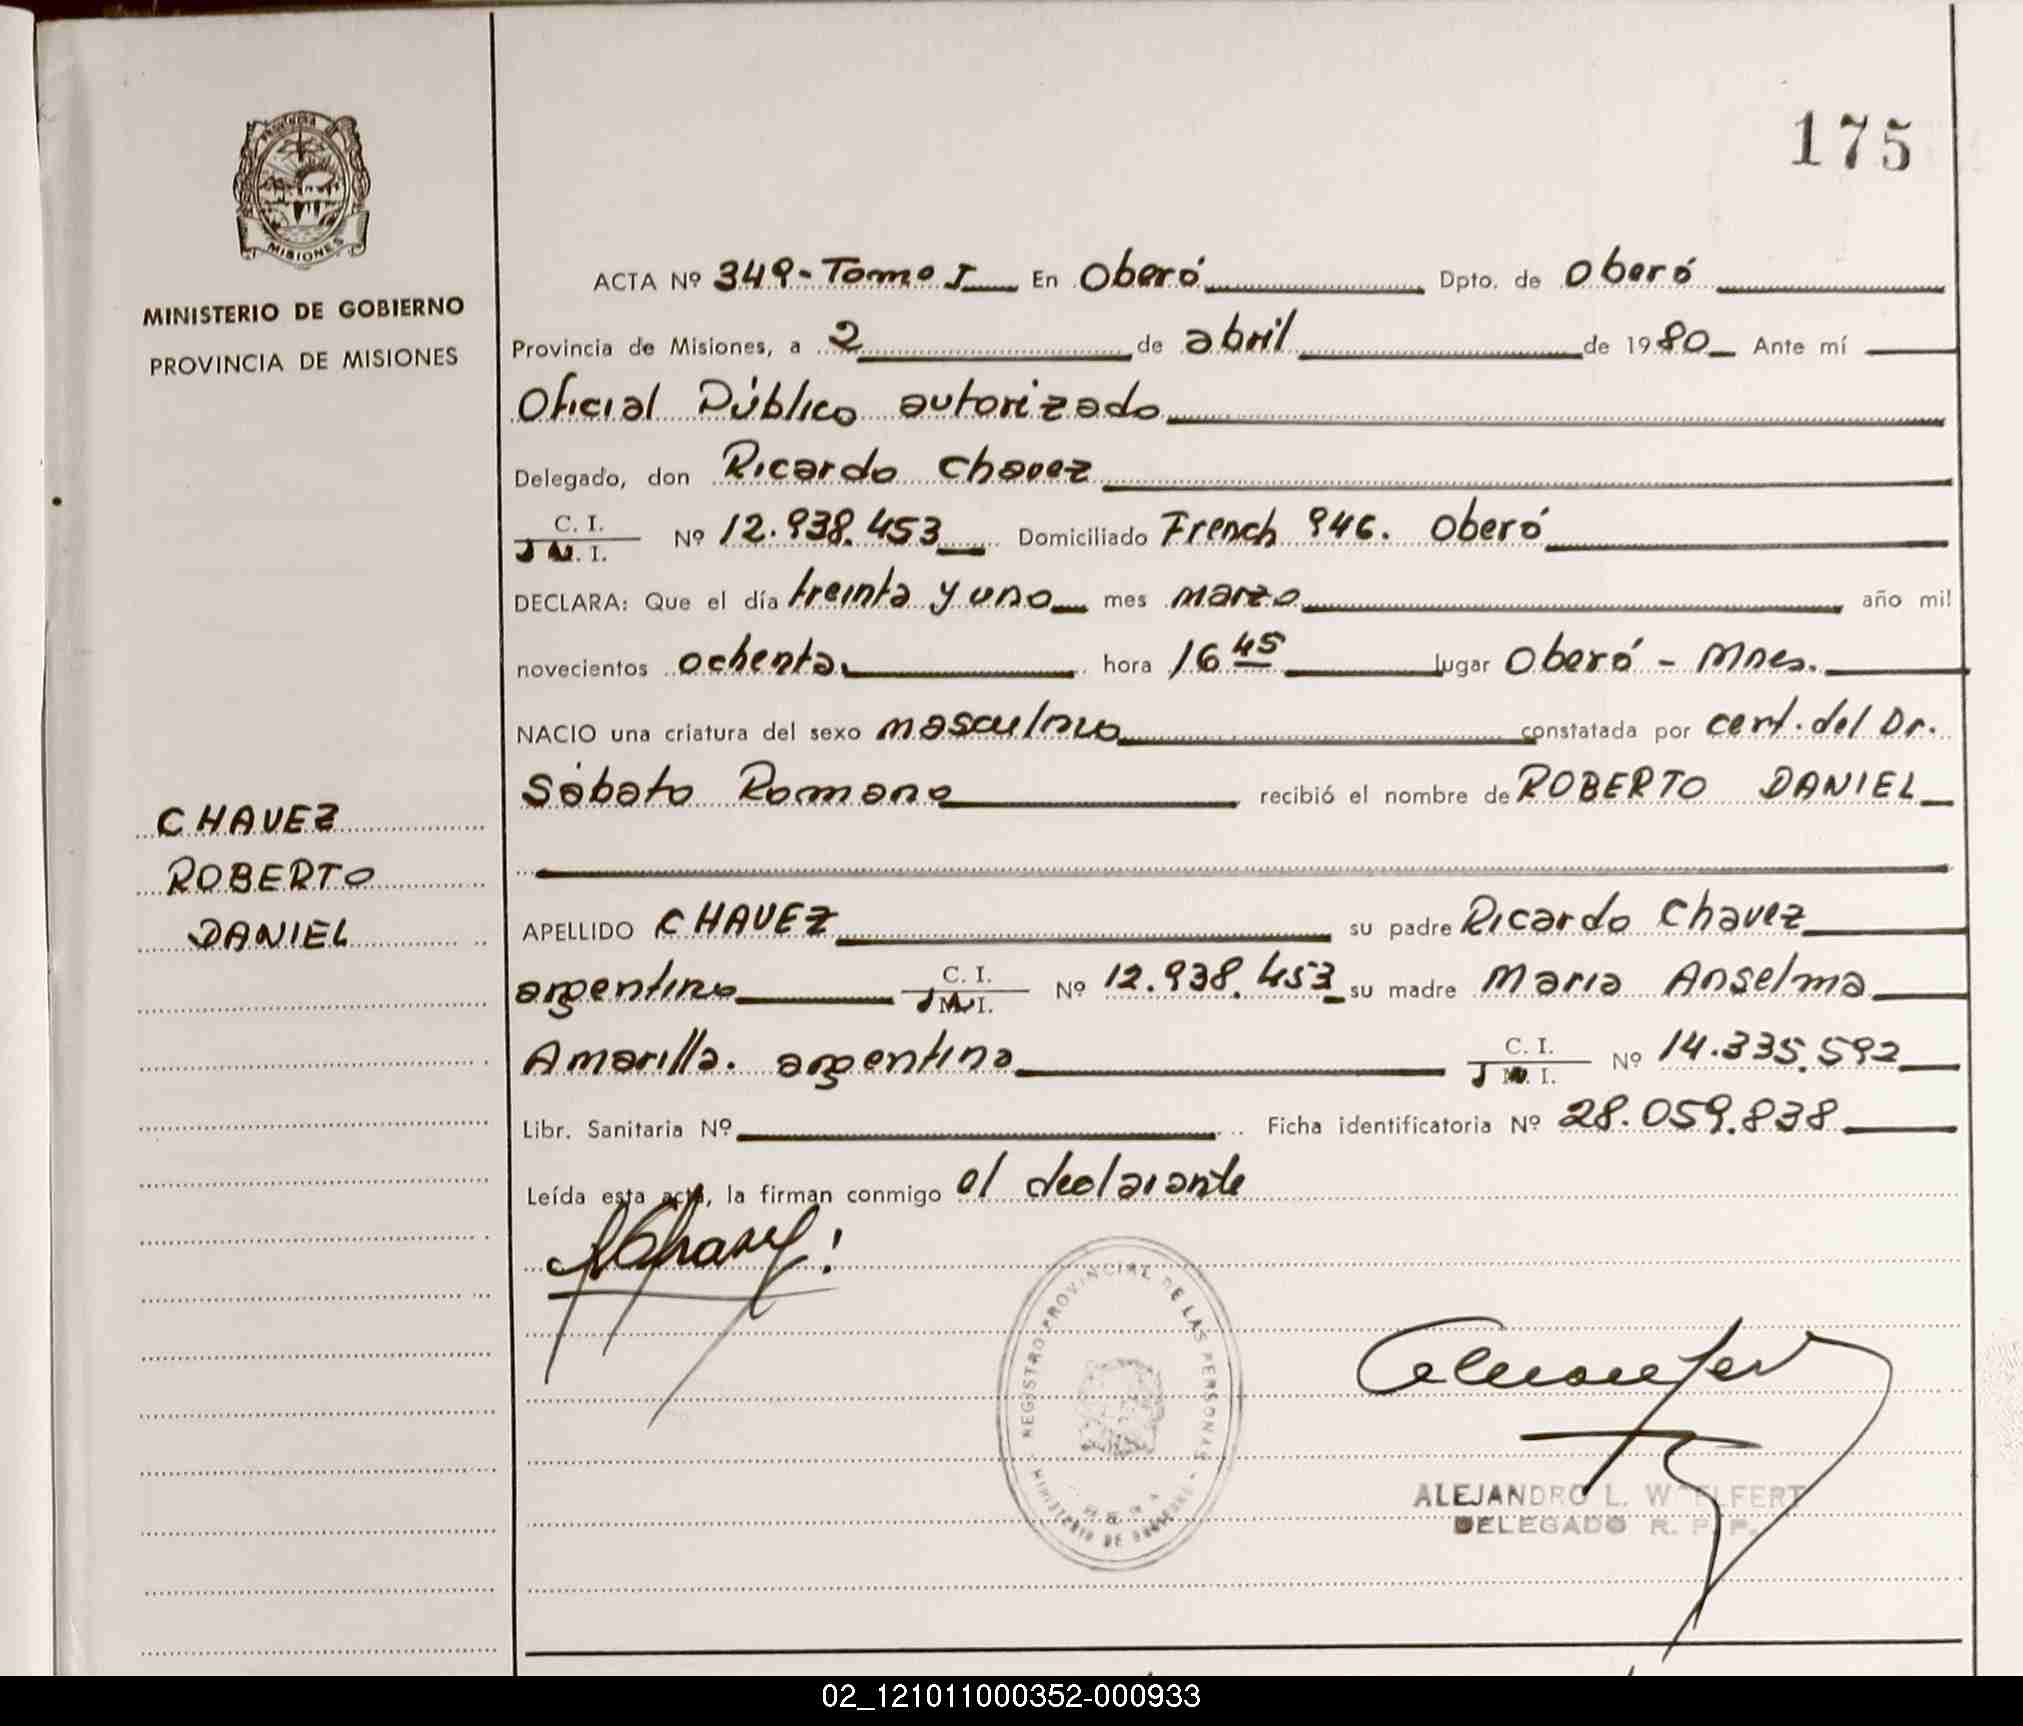 175
PROVINCIA
MISIONES
MINISTERIO DE GOBIERNO
PROVINCIA DE MISIONES
ACTA Nº 349-Tomo I En Oberó Dpto. de Oberó
Provincia de Misiones, a 2 de abril de 1980 Ante mí
Oficial Público autorizado
Delegado, don Ricardo Chavez
C. I.
Nº 12.938.453 Domiciliado French 946. Oberó
I.
DECLARA: Que el día treinta y uno mes marzo año mil
novecientos ochenta hora 16 45 lugar Oberó - Mnes.
NACIO una criatura del sexo masculino constatada por cert. del Dr.
Sábato Romano recibió el nombre de ROBERTO DANIEL
CHAVEZ
ROBERTO
DANIEL
APELLIDO CHAVEZ su padre Ricardo Chavez
argentino C. I. Nº 12.938.453 su madre Maria Anselma
M. I.
Amarilla. argentina C. I. Nº 14.335.592
I.
Libr. Sanitaria Nº Ficha identificatoria Nº 28.059.838
Leída esta acta, la firman conmigo el declarante
REGISTRO PROVINCIAL DE LAS PERSONAS
MINISTERIO DE GOBIERNO
ALEJANDRO L. WOELFERT
DELEGADO R. P. P.
02_121011000352-000933